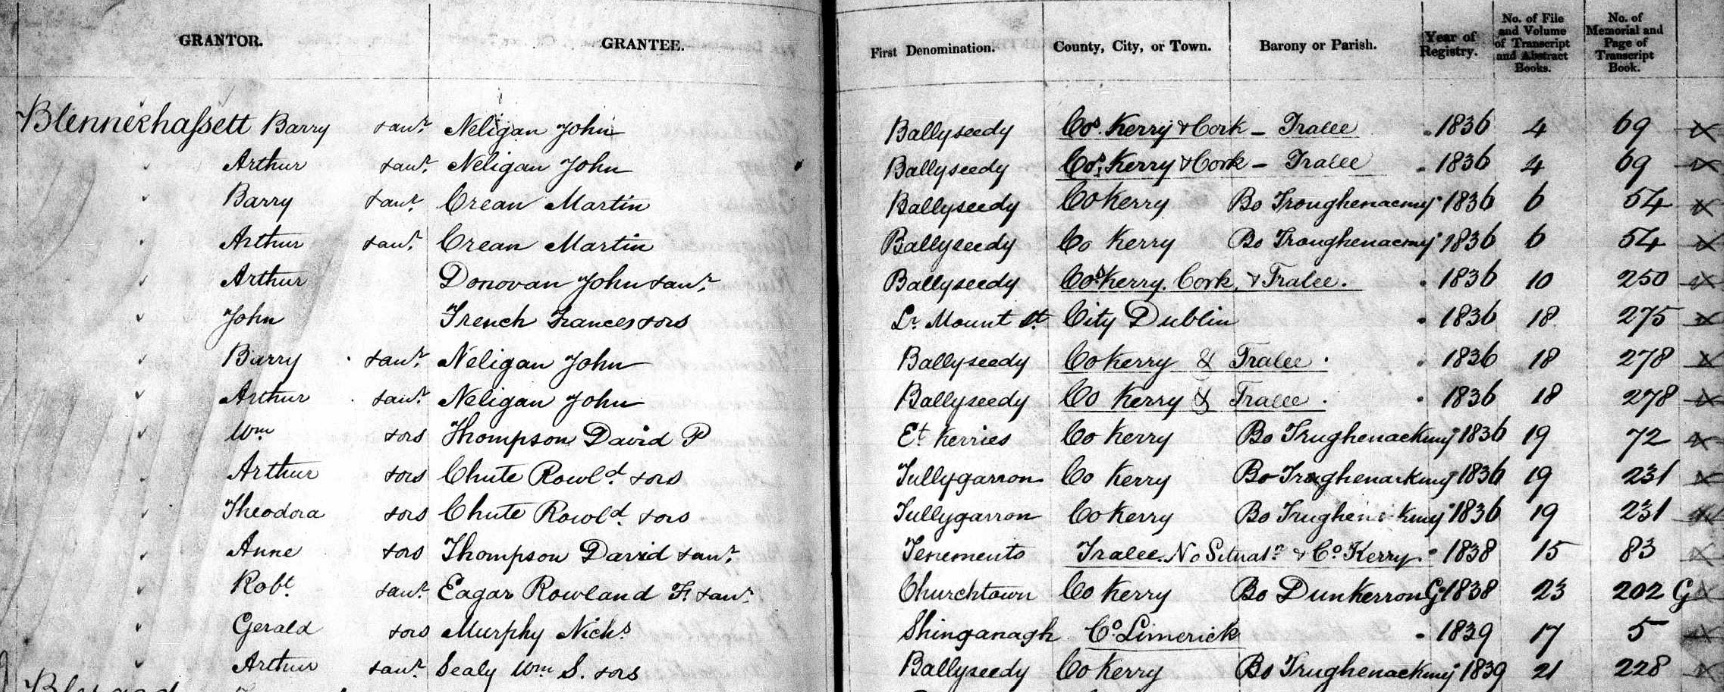 GRANTOR. GRANTEE. First Denomination. County, City, or Town. Barony or Parish. Year of Registry. No. of File and Volume of Transcript and Abstract Books. No. of Memorial and Page of Transcript Book.
Blennerhassett Barry & anr. Neligan John Ballyseedy Cos. Kerry & Cork – Tralee 1836 4 69
Arthur & anr. Neligan John Ballyseedy Cos. Kerry & Cork – Tralee 1836 4 69
Barry & anr. Crean Martin Ballyseedy Co Kerry Bo Troughenacmy 1836 6 54
Arthur & anr. Crean Martin Ballyseedy Co Kerry Bo Troughenacmy 1836 6 54
Arthur Donovan John & anr. Ballyseedy Cos Kerry, Cork, & Tralee. 1836 10 250
John French Frances & ors Lr. Mount St. City Dublin 1836 18 275
Barry & anr. Neligan John Ballyseedy Co Kerry & Tralee 1836 18 278
Arthur & anr. Neligan John Ballyseedy Co Kerry & Tralee 1836 18 278
Wm & ors Thompson David P Et Kerries Co Kerry Bo Trughenackmy 1836 19 72
Arthur & ors Chute Rowld. & ors Tullygarron Co Kerry Bo Trughenackmy 1836 19 231
Theodora & ors Chute Rowld. & ors Tullygarron Co Kerry Bo 1836 19 231
Anne & ors Thompson David & anr. Tenements Tralee. No Situatn & Co. Kerry 1838 15 83
Robt. & anr. Eagar Rowland F. & anr. Churchtown Co Kerry Bo Dunkerron G 1838 23 202 G
Gerald & ors Murphy Nichs. Shinganagh Co. Limerick 1839 17 5
Arthur & anr. Sealy Wm S. & ors Ballyseedy Co Kerry Bo Trughenackmy 1839 21 228